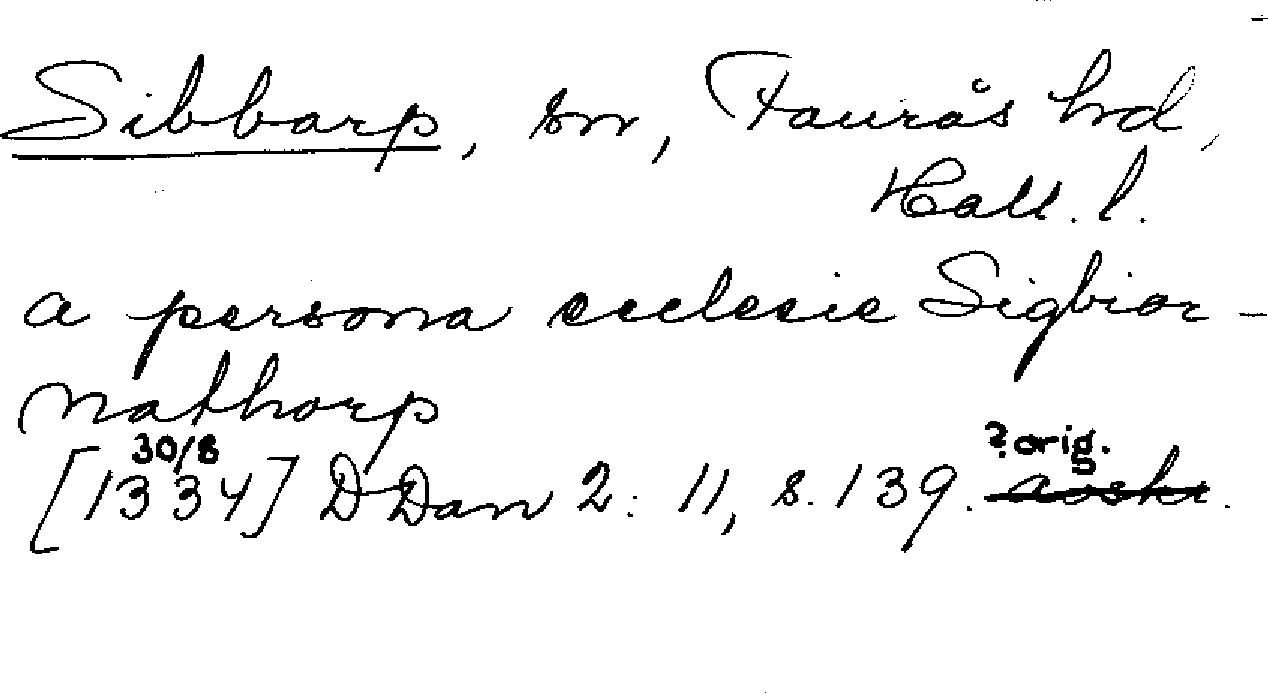 Sibbarp, sn, Faurås hrd,
Hall. l.
a persona ecclesie Sigbior-
nathorp
30/8 ? orig.
[1334] DDan 2: 11, s. 139. avskr.